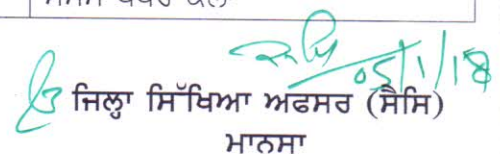 05/1/18
ਜਿਲ੍ਹਾ ਸਿੱਖਿਆ ਅਫਸਰ (ਸੈਸਿ)
ਮਾਨਸਾ